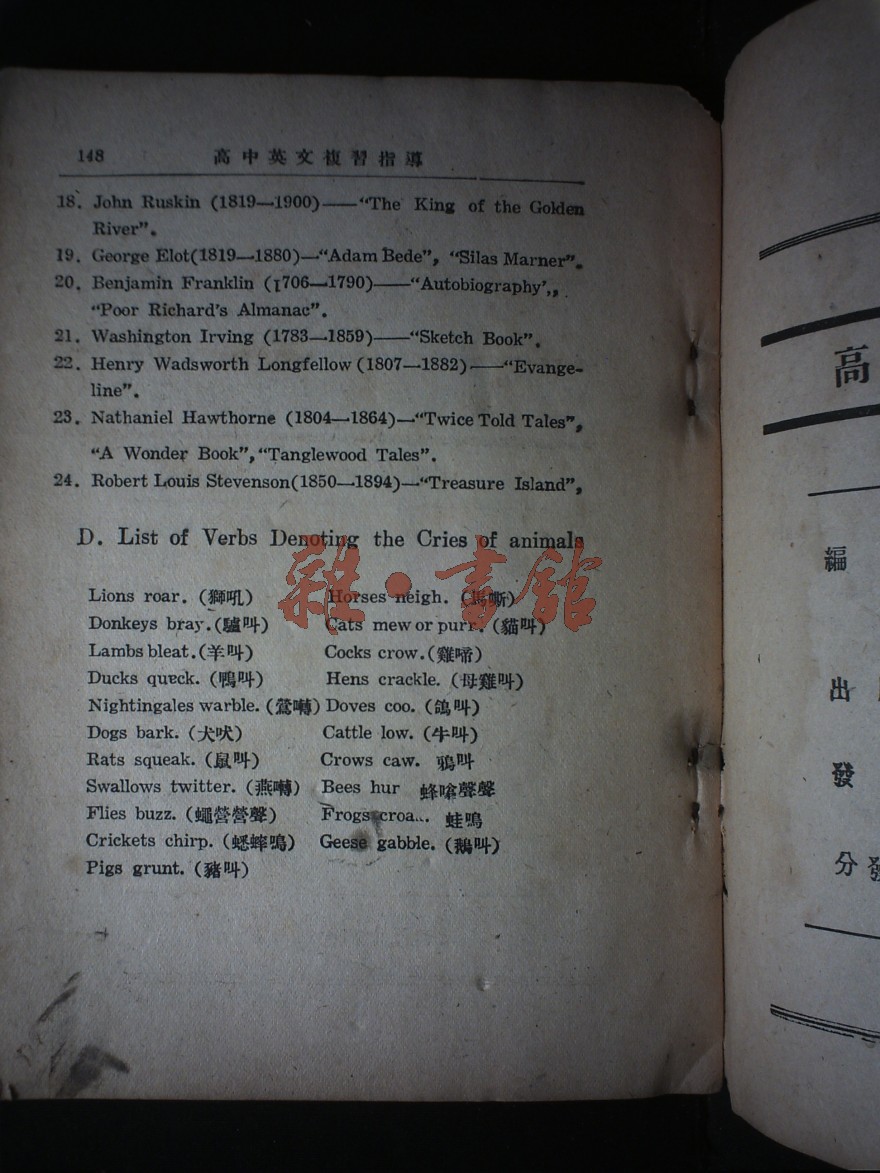 148 高中英文複習指導
18. John Ruskin (1819—1900)——“The King of the Golden
River”.
19. George Elot(1819—1880)—“Adam Bede”, “Silas Marner”.
20. Benjamin Franklin (1706—1790)——“Autobiography’,,
“Poor Richard's Almanac”.
21. Washington Irving (1783—1859)——“Sketch Book”.
22. Henry Wadsworth Longfellow (1807—1882)——“Evange-
line”.
23. Nathaniel Hawthorne (1804—1864)—“Twice Told Tales”,
“A Wonder Book”, “Tanglewood Tales”.
24. Robert Louis Stevenson(1850—1894)—“Treasure Island”,
D. List of Verbs Denoting the Cries of animals
Lions roar. (獅吼) Horses neigh. (馬嘶)
Donkeys bray. (驢叫) Cats mew or purr. (貓叫)
Lambs bleat. (羊叫) Cocks crow. (雞啼)
Ducks queck. (鴨叫) Hens crackle. (母雞叫)
Nightingales warble. (鶯囀) Doves coo. (鴿叫)
Dogs bark. (犬吠) Cattle low. (牛叫)
Rats squeak. (鼠叫) Crows caw. 鴉叫
Swallows twitter. (燕囀) Bees hur 蜂嗆聲聲
Flies buzz. (蠅營營聲) Frogs croa 蛙鳴
Crickets chirp. (蟋蟀鳴) Geese gabble. (鵝叫)
Pigs grunt. (豬叫)
雜·書館
高
編
出
發
分發